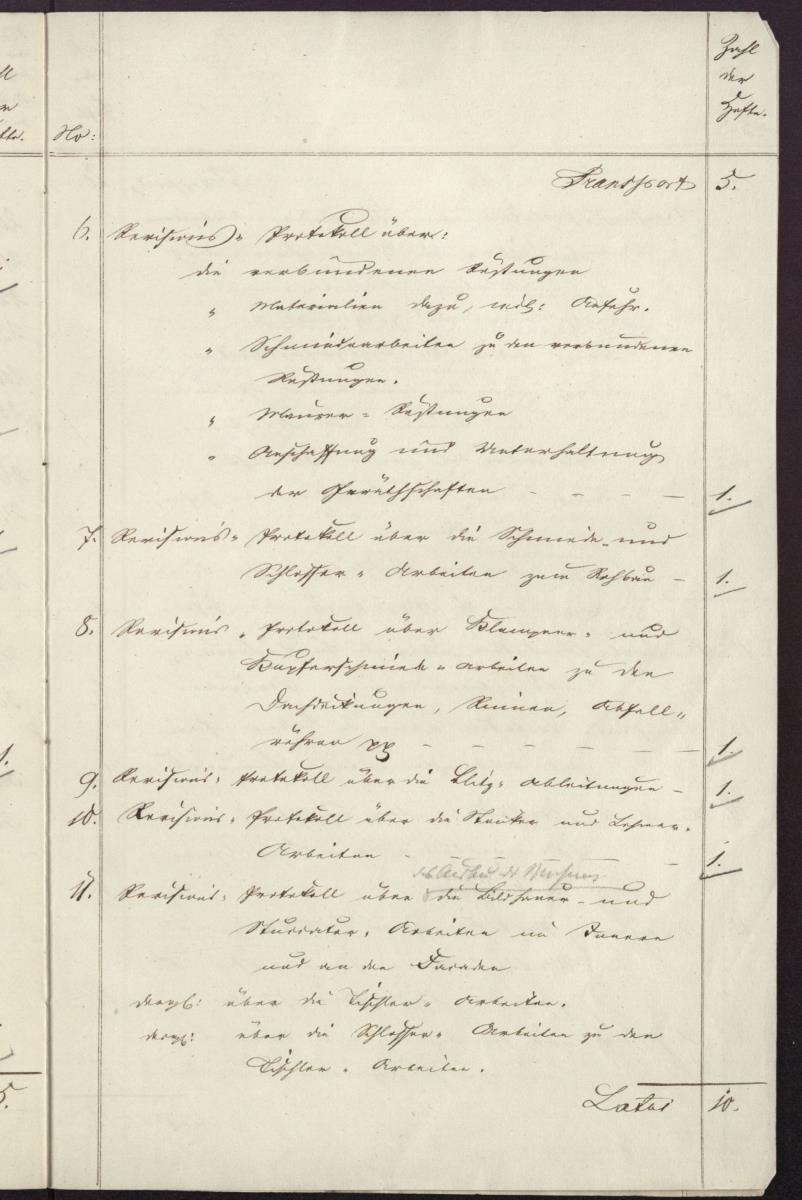 No:
Zahl
der
Hefte.
Transport 5.
6. Revisions= Protokoll über:
die verbundenen Rüstungen
" Materialien dazu, incl: Anfuhr.
" Schmiedearbeiten zu den verbundenen
Rüstungen.
" Maurer= Rüstungen
" Anschaffung und Unterhaltung
der Geräthschaften – – – – 1.
7. Revisions= Protokoll über die Schmiede- und
Schlosser= Arbeiten zum Rohbau – 1.
8. Revisions= Protokoll über Klempner= und
Kupferschmiede= Arbeiten zu den
Dachdeckungen, Rinnen, Abfall=
röhren pp – – – – – – 1.
9. Revisions= Protokoll über die Blitz= Ableitungen – 1.
10. Revisions= Protokoll über die Staker und Lehmer=
Arbeiten – – – – – – 1.
11. Revisions= Protokoll über die Bildhauer- und
Stuccatur= Arbeiten im Innern
und an den Facaden
dergl: über die Tischler= Arbeiten.
dergl: über die Schlosser= Arbeiten zu den
Tischler= Arbeiten.
Latus 10.